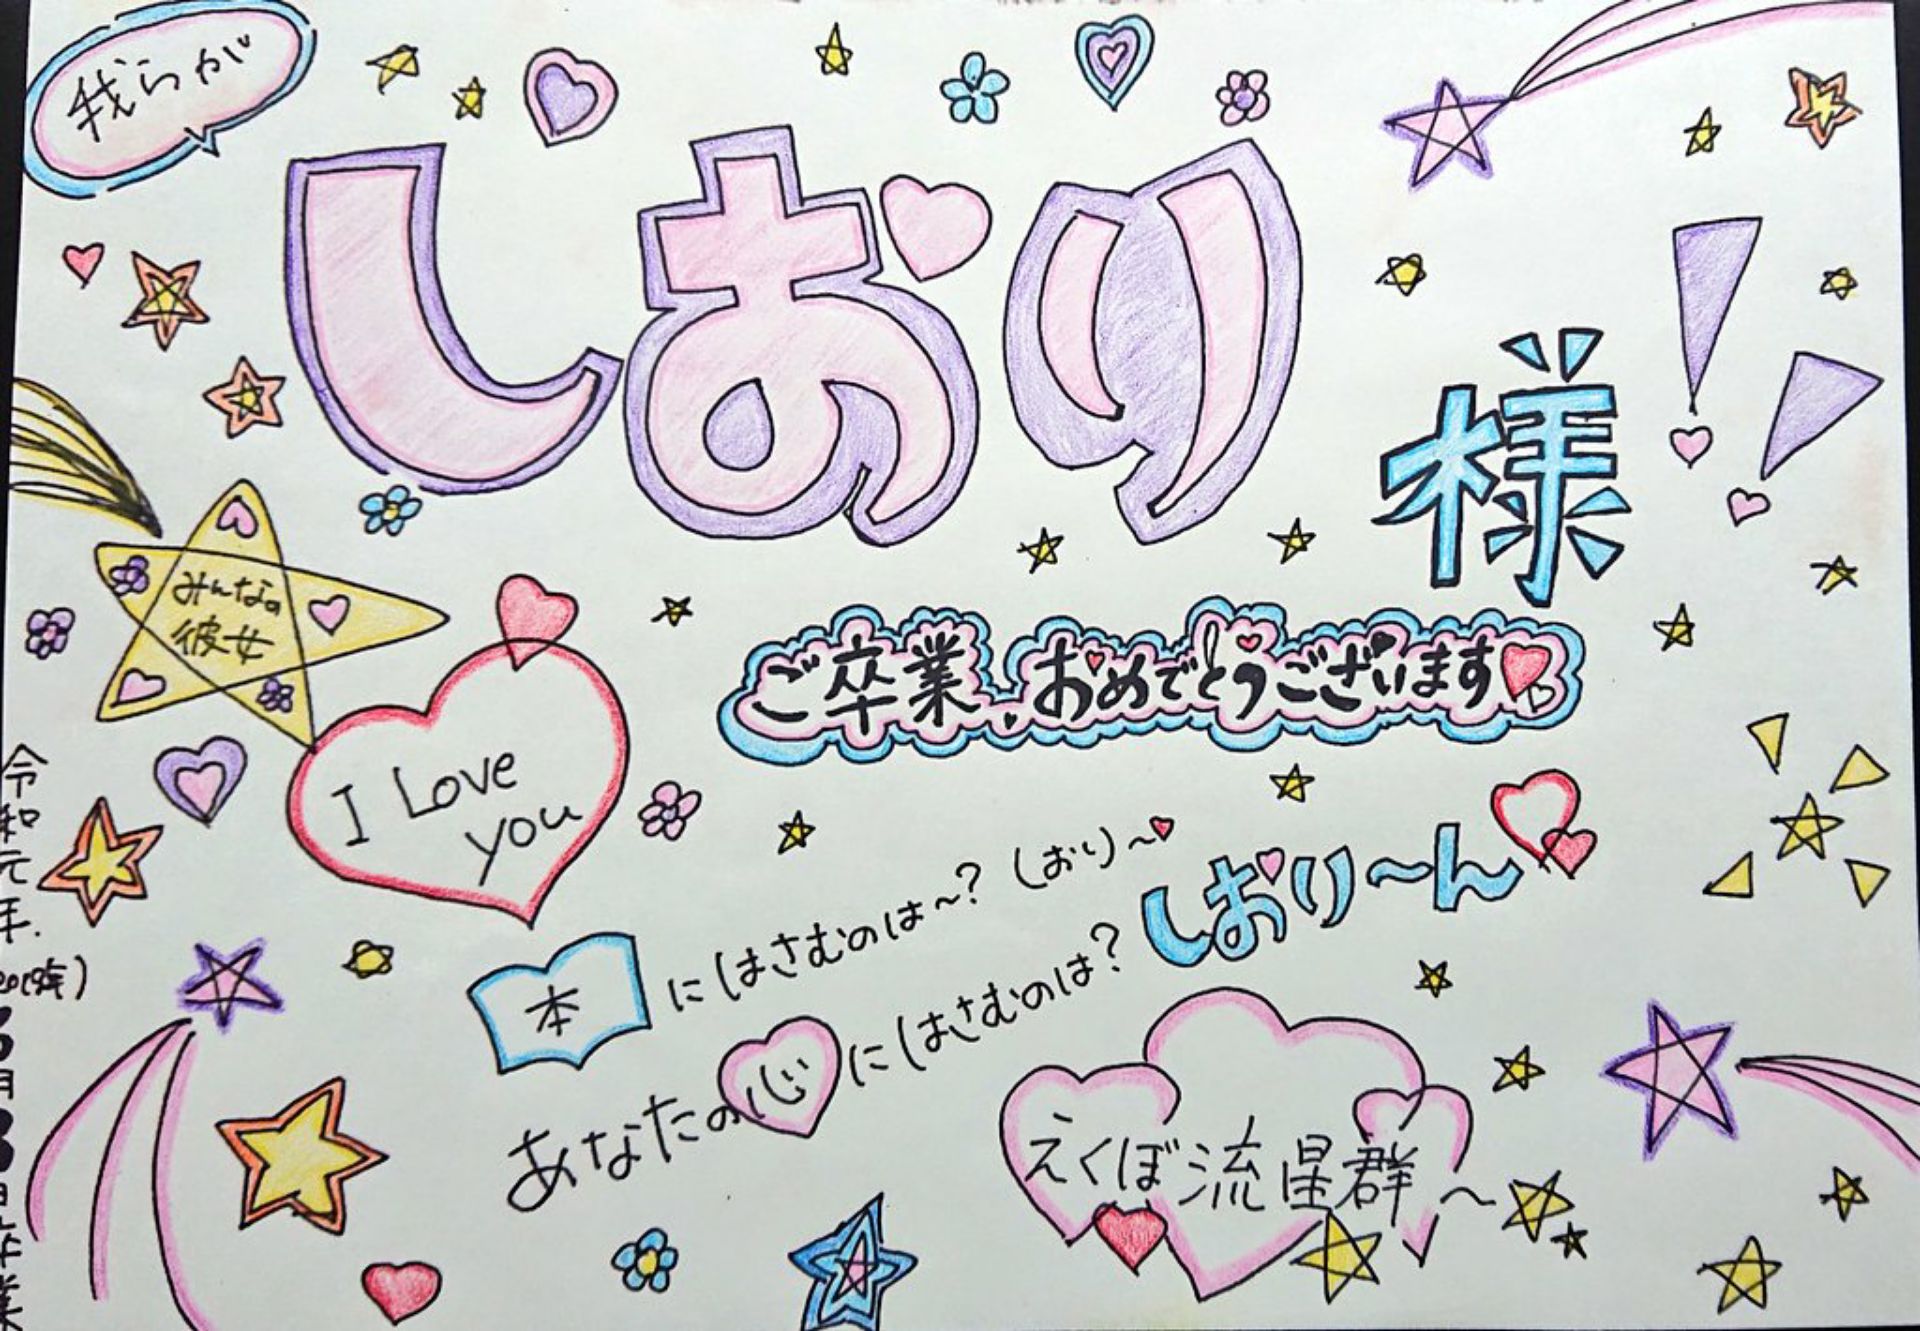 我らが
しおり
様
みんなの
彼女
ご卒業、おめでとうございます
I Love
you
本にはさむのは〜? しおり〜
あなたの心にはさむのは? しおり〜ん
えくぼ流星群〜
令和元年.
月
卒業